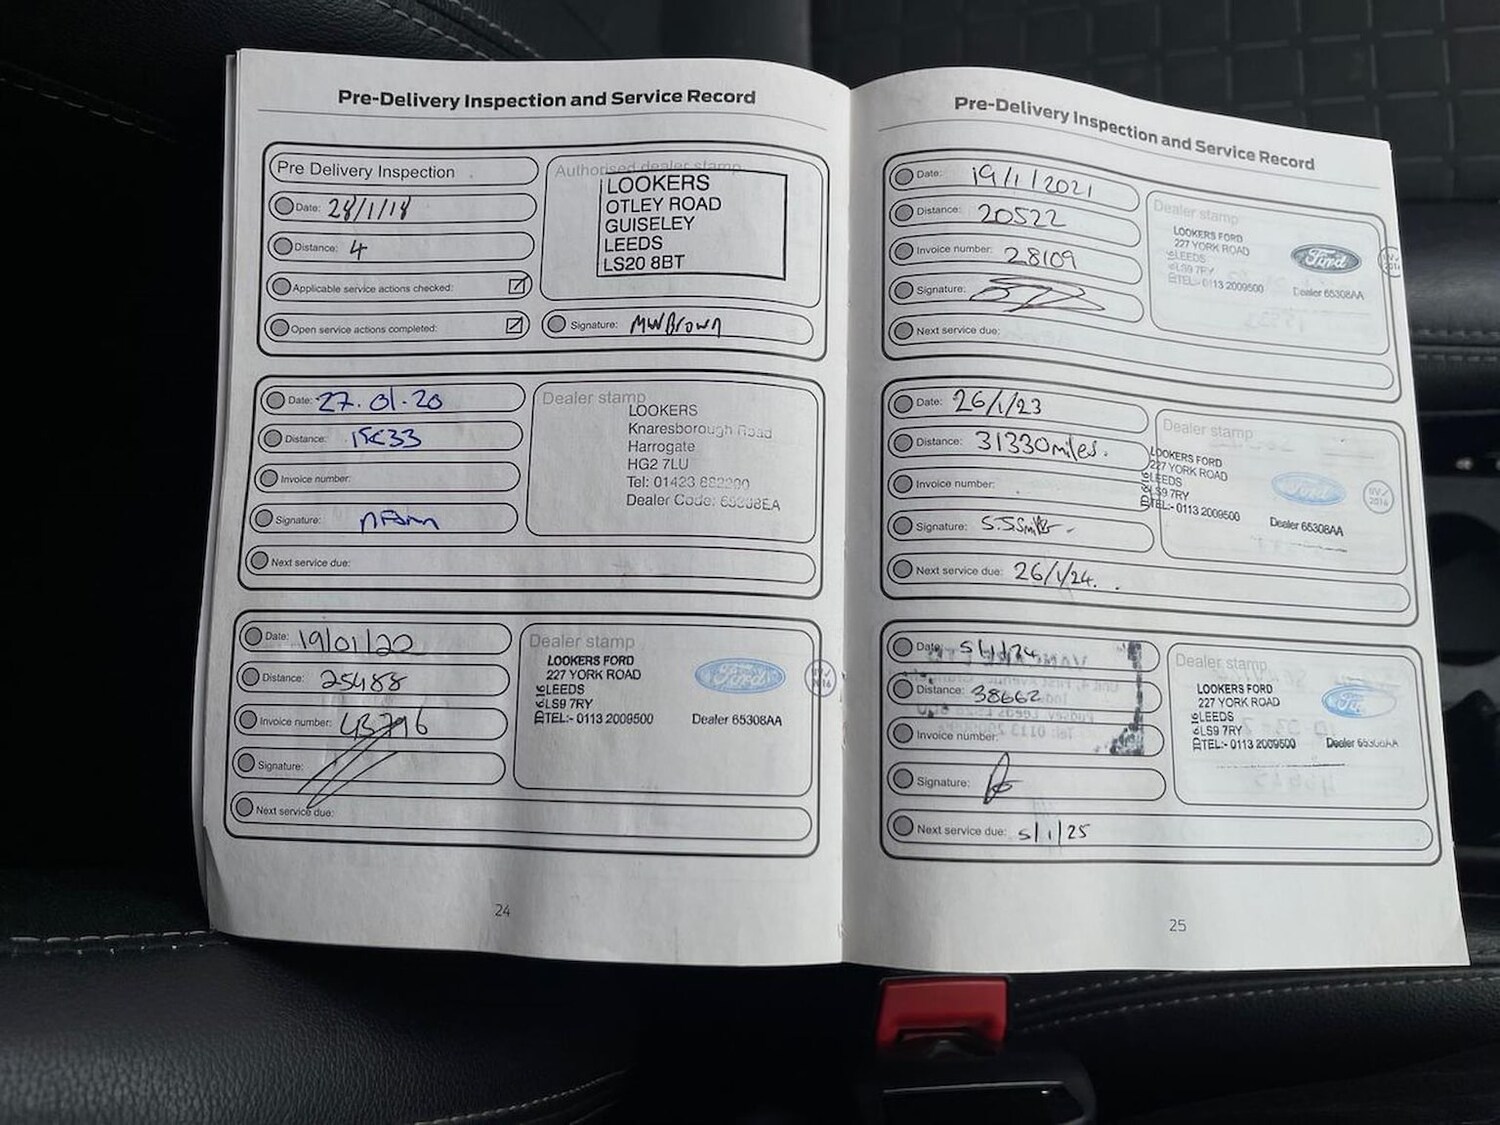 Pre-Delivery Inspection and Service Record
Pre Delivery Inspection
Date: 28/1/18
Distance: 4
Applicable service actions checked:
Open service actions completed:
Authorised dealer stamp
LOOKERS
OTLEY ROAD
GUISELEY
LEEDS
LS20 8BT
Signature: MWBrown
Date: 27.01.20
Distance:
Invoice number:
Signature:
Next service due:
Dealer stamp
LOOKERS
Knaresborough Road
Harrogate
HG2 7LU
Tel: 01423
Dealer Code:
Date: 19/01/22
Distance: 25488
Invoice number: 43796
Signature:
Next service due:
Dealer stamp
LOOKERS FORD
227 YORK ROAD
LEEDS
LS9 7RY
TEL:- 0113 2009500
Ford
Dealer 65308AA
24
Pre-Delivery Inspection and Service Record
Date: 19/1/2021
Distance: 20522
Invoice number: 28109
Signature:
Next service due:
Dealer stamp
LOOKERS FORD
227 YORK ROAD
LEEDS
LS9 7RY
TEL:- 0113 2009500
Ford
Dealer 65308AA
Date: 26/1/23
Distance: 31330miles.
Invoice number:
Signature:
Next service due: 26/1/24.
Dealer stamp
LOOKERS FORD
227 YORK ROAD
LEEDS
LS9 7RY
TEL:- 0113 2009500
Ford
Dealer 65308AA
Date: 5/1/24
Distance: 38662
Invoice number:
Signature:
Next service due: 5/1/25
Dealer stamp
LOOKERS FORD
227 YORK ROAD
LEEDS
LS9 7RY
TEL:- 0113 2009500
Dealer
25